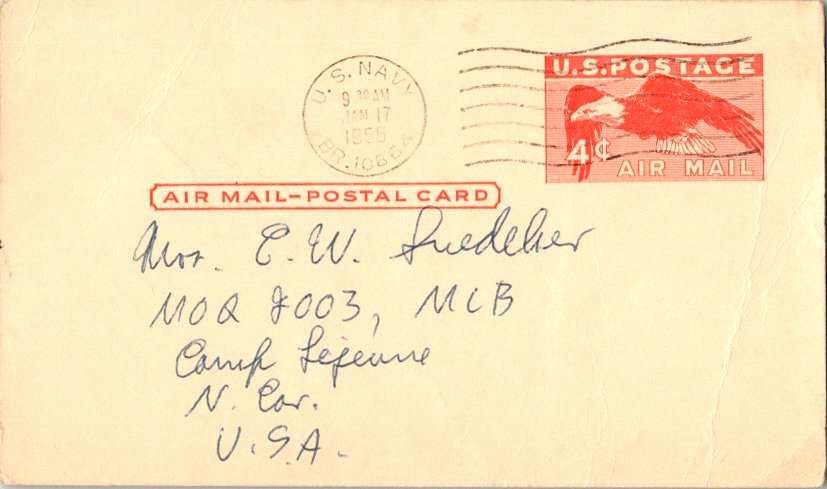 U.S. NAVY
9 30 AM
JAN 17
1955
BR. 10664
U.S. POSTAGE
4¢
AIR MAIL
AIR MAIL—POSTAL CARD
Mrs. E. W. Snedeker
MOQ 2003, MCB
Camp Lejeune
N. Car.
U.S.A.